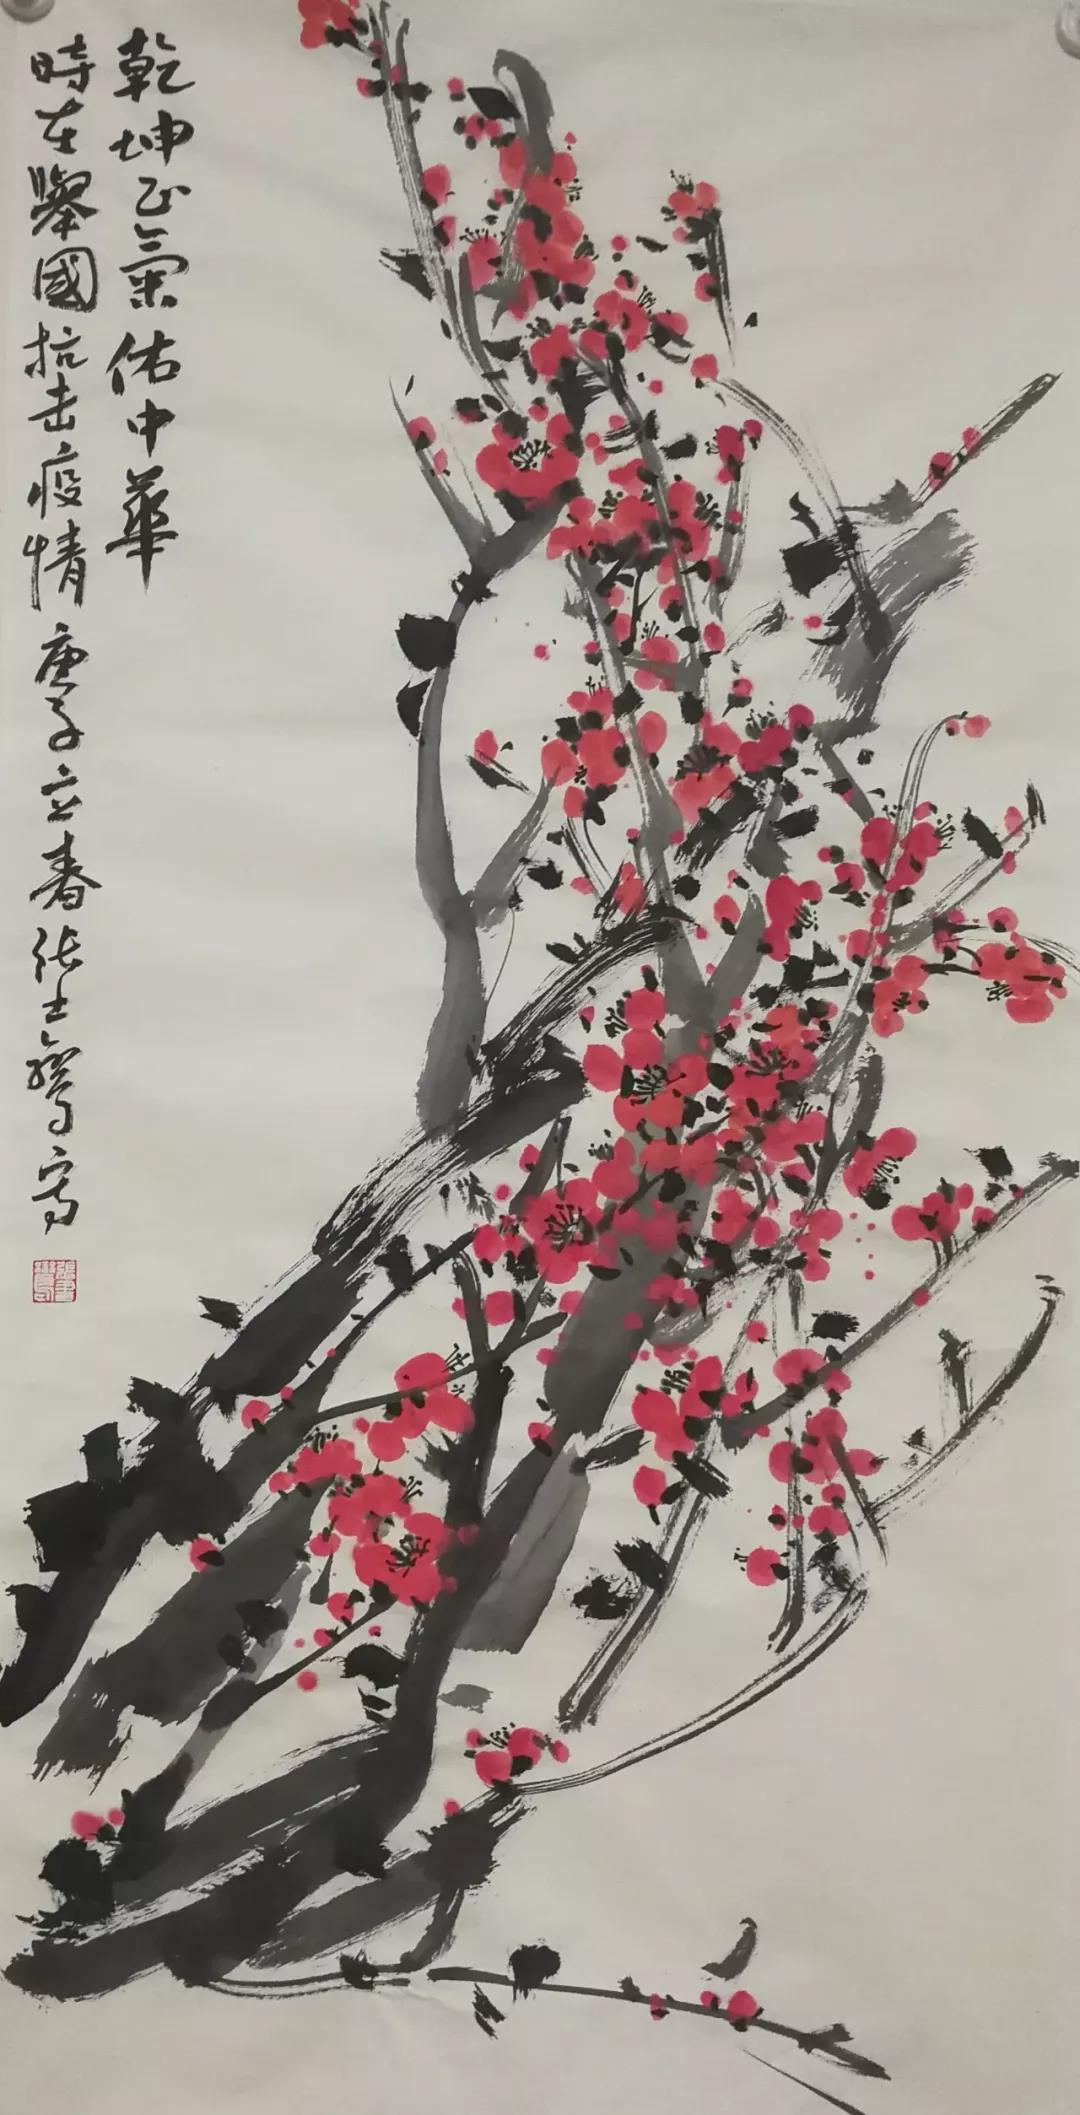 乾坤正氣佑中華
時在舉國抗击疫情庚子立春張士鶯写